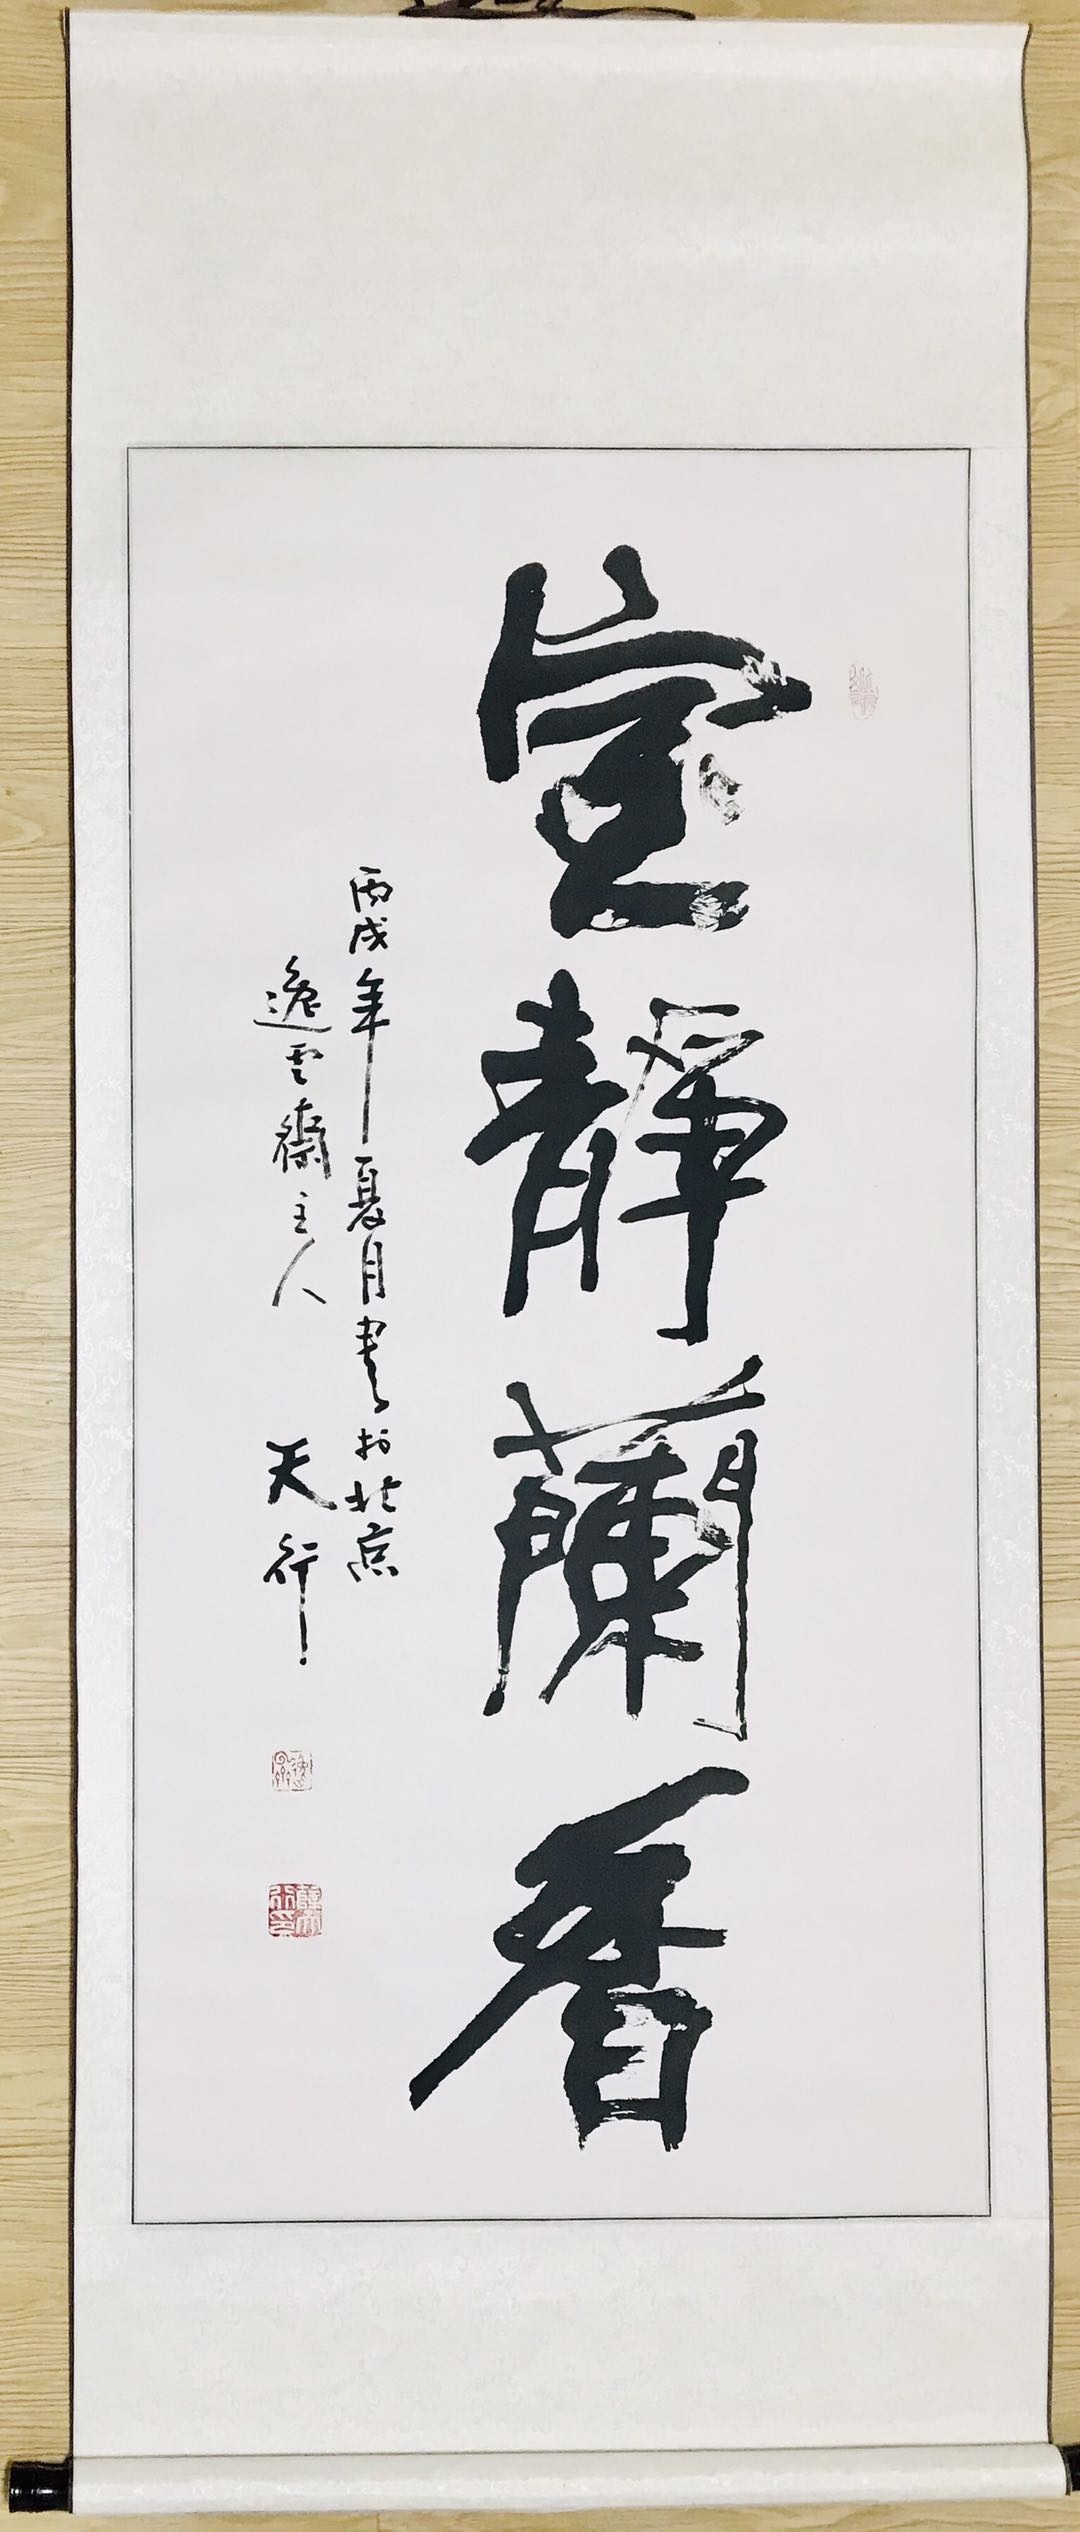 室靜蘭香
丙戌年夏月書於北京
逸雲齋主人 天行